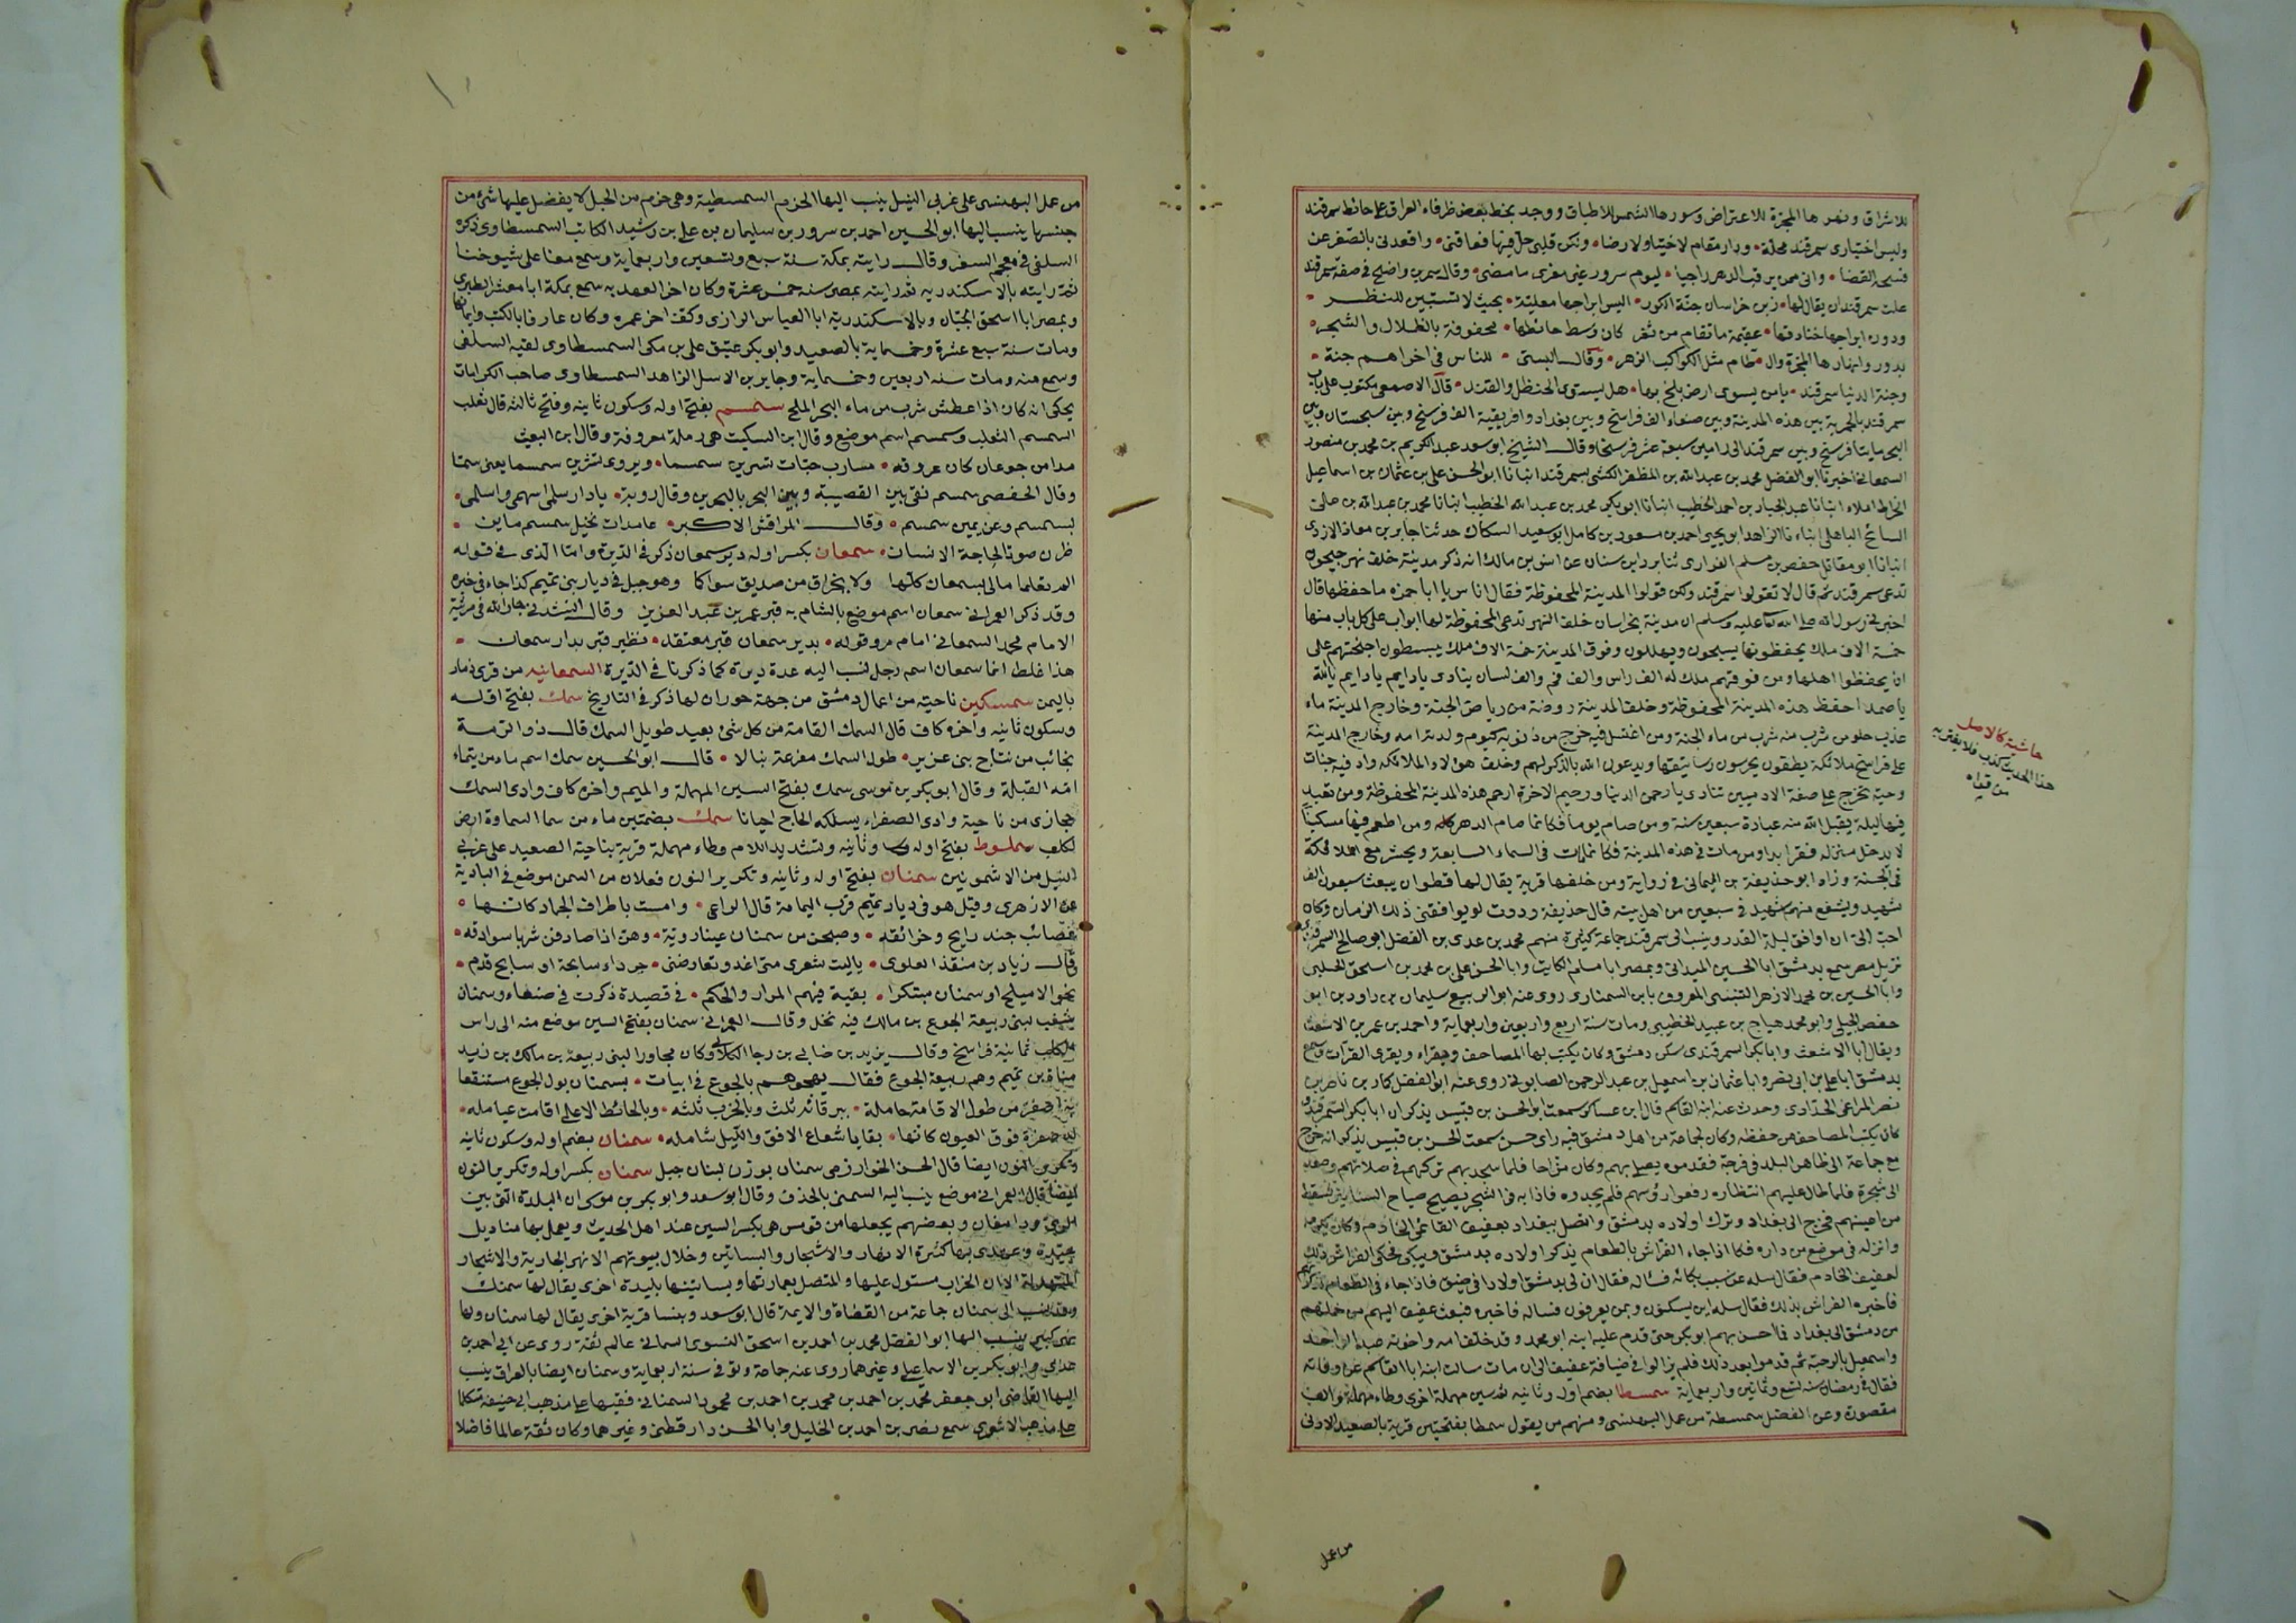 للاشراق ونهرها المجرة للاعتراض وسورها الشمس للاطباق ووجد بخط بعض ظرفاء العراق على حائط سمرقند
وليس اختياري سمرقند محلة ودار مقام لاختيار ولا رضا ولكن قلبي حل فيها فعاقني واقعدني بالصغر عن
فسحة القضا واني ممن يرقب الدهر راجيا ليوم سرور غير مغرى بما مضى وقال سمر بن واضح في صفة سمرقند
علت سمرقند ان يقال لها زين خراسان جنة الكور اليس ابراجها معلقة بحيث لا تستبين للنظر
ودور ابراجها خنادقها عميقة ما ترام من ثغر كان وسط حائطها محفوفة بالظلال والشجر
بدر وانهارها المجرة والـ طام مثل الكواكب الزهر وقال البستي للناس في اخراهم جنة
وجنة الدنيا سمرقند يا من يسوى ارض بلخ بها هل يستوي الحنظل والقند قال الاصمعي مكتوب على باب
سمرقند بالحميرية بين هذه المدينة وبين صنعاء الف فرسخ وبين بغداد وافريقية الف فرسخ وبين سجستان وبين
البحر مايتا فرسخ وبين سمرقند الى زامين سبعة عشر فرسخا وقال الشيخ ابو سعد عبد الكريم بن محمد بن منصور
السمعاني اخبرنا ابو الفضل محمد بن عبد الله بن المظفر الكشي بسمرقند انبانا ابو الحسن علي بن عثمان بن اسماعيل
الخراط املاء انبانا عبد الجبار بن احمد الخطيب انبانا ابو بكر محمد بن عبد الله الخطيب انبانا محمد بن عبد الله بن علي
السائح الباهلي انبانا الزاهد ابو يحيى احمد بن مسعود بن كامل ابو سعيد السكاك حدثنا جابر بن معاذ الازدي
انبانا ابو مقاتل حفص بن مسلم الفزاري ثنا برد بن سنان عن انس بن مالك انه ذكر مدينة خلف نهر جيحون
تدعى سمرقند ثم قال لا تقولوا سمرقند ولكن قولوا المدينة المحفوظة فقال اناس يا ابا حمزة ما حفظها قال
اخبرني رسول الله صلى الله عليه وسلم ان مدينة بخراسان خلف النهر تدعى المحفوظة لها ابواب على كل باب منها
خمسة الاف ملك يحفظونها يسبحون ويهللون وفوق المدينة خمسة الاف ملك يبسطون اجنحتهم على
ان يحفظوا اهلها ومن فوقهم ملك له الف راس والف فم والف لسان ينادي يا دايم يا دايم يا الله
يا صمد احفظ هذه المدينة المحفوظة وخلف المدينة روضة من رياض الجنة وخارج المدينة ماء
عذب حلو من شرب منه شرب من ماء الجنة ومن اغتسل فيه خرج من ذنوبه كيوم ولدته امه وخارج المدينة
على فراسخ ملائكة يطوفون يحرسون رساتيقها ويدعون الله بالذكر لهم وخلف هؤلاء الملائكة واد فيه حيات
وحية تخرج على صفة الادميين تنادي يا رحمن الدنيا ورحيم الاخرة ارحم هذه المدينة المحفوظة ومن تعبد
فيها ليلة يقبل الله منه عبادة سبعين سنة ومن صام يوما فكانما صام الدهر كله ومن اطعم فيها مسكينا
لا يدخل منزله فقر ابدا ومن مات في هذه المدينة فكانما مات في السماء السابعة ويحشر مع الملائكة
في الجنة وزاد ابو حذيفة بن اليماني في رواية ومن خلفها قرية يقال لها قطوان يبعث سبعون الف
شهيد ويشفع منهم شهيد في سبعين من اهل بيته قال حذيفة وددت لو يوافقني ذلك الزمان وكان
احب الي ان اوافق ليلة القدر وينسب الى سمرقند جماعة كثيرة منهم محمد بن عدي بن الفضل ابو صالح السمرقندي
نزيل مصر سمع بدمشق ابا الحسين الميداني وبمصر ابا مسلم الكاتب وابا الحسن علي بن محمد بن اسحق الحلبي
وابا الحسين بن محمد الازهر التنيسي المعروف بابن السمناري روى عنه ابو الربيع سليمان بن داود بن ابي
حفص الجيلي وابو محمد هياج بن عبيد الخطيبي ومات سنة اربع واربعين واربعماية واحمد بن عمر بن الاشعث
ويقال ابا الاشعث وابا بكر السمرقندي سكن دمشق وكان يكتب بها المصاحف ويقراء ويقري القرآن وسمع
بدمشق ابا علي بن ابي نصر وابا عثمان بن اسمعيل بن عبد الرحمن الصابوني روى عنه ابو الفضل كمار بن ناصر بن
نصر المراغي الحدادي وحدث عنه ابنه القاسم قال ابن عساكر سمعت ابو الحسن بن قبيس يذكر ان ابا بكر السمرقندي
كان يكتب المصاحف من حفظه وكان لجماعة من اهل دمشق فيه راى حسن سمعت الحسن بن قبيس يذكر انه خرج
مع جماعة الى ظاهر البلد في فرجة فقدموه يصلي بهم وكان مزاحا فلما سجد بهم تركهم في صلاتهم وصعد
الى شجرة فلما طال عليهم انتظاره رفعوا رؤسهم فلم يجدوه فاذا به في الشجر يصيح صياح السنانير فسقط
من اعينهم فخرج الى بغداد وترك اولاده بدمشق واتصل ببغداد بعفيف القائمي الخادم وكان يكرمه
وانزله في موضع من داره فكان اذا جاء الفراش بالطعام يذكر اولاده بدمشق ويبكي فحكى الفراش ذلك
لعفيف الخادم فقال سله عن سبب بكائه فساله فقال ان لي بدمشق اولادا في ضيق فاذا جاء في الطعام تذكرتهم
فاخبره الفراش بذلك فقال سله اين يسكنون وبمن يعرفون فساله فاخبره فبعث عفيف اليهم من حملهم
من دمشق الى بغداد فما احس بهم ابو بكر حتى قدم عليه ابنه ابو محمد وقد خلف امه واخوته عبد الواحد
واسمعيل بالرحبة ثم قدموا بعد ذلك فلم يزالوا في ضيافة عفيف الى ان مات سالت ابنه ابا القاسم عن وفاته
فقال في رمضان سنة تسع وثمانين واربعماية سمسطا بضم اوله وثانيه ثم سين مهملة اخرى وطاء مهملة والف
مقصورة وعن الفضل سمسطة من عمل البهنسى ومنهم من يقول سمطا بفتحتين قرية بالصعيد الادنى
حاشية كالاصل
هذا الحديث كذب فلا يغتر به
من قراه
من عمل
من عمل البهنسى على غربي النيل ينسب اليها الحزم السمسطية وهي حزم من الحبل لا يفضل عليها شئ من
جنسها ينسب اليها ابو الحسين احمد بن سرور بن سليمان بن علي بن رشيد الكاتب السمسطاوي ذكره
السلفي في معجم السفر وقال رايته بمكة سنة سبع وتسعين واربعماية وسمع معنا على شيوخنا
ثم رايته بالاسكندرية ثم رايته بمصر سنة خمس عشرة وكان اخر العهد به سمع بمكة ابا معشر الطبري
وبمصر ابا اسحق الحبال وبالاسكندرية ابا العباس الرازي وكف اخر عمره وكان عارفا بالكتب واثمانها
ومات سنة سبع عشرة وخمسماية بالصعيد وابو بكر عتيق علي بن مكي السمسطاوي لقيه السلفي
وسمع منه ومات سنه اربعين وخمسماية وجابر بن الاسل الزاهد السمسطاوي صاحب الكرامات
يحكى انه كان اذا عطش شرب من ماء البحر الملح سمسم بفتح اوله وسكون ثانيه وفتح ثالثه قال ثعلب
السمسم الثعلب وسمسم اسم موضع وقال ابن السكيت هي رملة معروفة وقال ابن البعيث
مدامن جوعان كان عروقه مسارب حيات تسرين سمسما ويروى تشربن سمسما يعني سما
وقال الحفصي سمسم نقى بين القصيبة وبين البحر بالبحرين وقال روبة يا دار سلمى اسهمى واسلمى
بسمسم وعن يمين سمسم وقال المرقش الاكبر عامدات لخيل سمسم ما ين
ظرن صوتا لحاجة الانسان سمعان بكسر اوله دير سمعان ذكر في الديرة واما الذي في قوله
الم تعلما مالي بسمعان كلها ولا بخزاق من صديق سواكا وهو جبل في ديار بني تميم كذا جاء في خبره
وقد ذكر العمراني سمعان اسم موضع بالشام به قبر عمر بن عبد العزيز وقال انشدني جار الله في مرثية
الامام محمد السمعاني امام مرو قوله بدير سمعان قبر معتقد نظير قبر بدار سمعان
هذا غلط انما سمعان اسم رجل نسب اليه عدة ديرة كما ذكرنا في الديرة السمعانيه من قرى ذمار
باليمن سمسكين ناحية من اعمال دمشق من جهة حوران لها ذكر في التاريخ سمك بفتح اوله
وسكون ثانيه واخره كاف قال السمك القامة من كل شئ بعيد طويل السمك قال ذو الرمة
نجائب من نتاج بني عزير طول السمك مفرعة نبالا قال ابو الحسين سمك اسم ماء من تيماء
امه القبلة وقال ابو بكر بن موسى سمك بفتح السين المهملة والميم واخره كاف وادي السمك
حجازي من ناحية وادي الصفراء يسلكه الحاج احيانا سمك بضمتين ماء من سما السماوة ارض
لكلب سملوط بفتح اوله وثانيه وتشديد اللام وطاء مهملة قرية بناحية الصعيد على غربي
النيل من الاشمونين سمنان بفتح اوله وثانيه وتكرير النون فعلان من السمن موضع في البادية
عن الازهري وقيل هو في ديار تميم قرب اليمامة قال الراعي وامست باطراف الجماد كانها
عصائب جند رايح وخرانقه وصبحن من سمنان عينا روية وهن اذا صادفن شربا سوادقه
وقال زياد بن منقذ العلوى يا ليت شعري متى اغدو تعارضني جرداء سابحة او سابح قدم
نحو الاميلح او سمنان مبتكرا بفتية فيهم المرار والحكم في قصيدة ذكرت في صنعاء وسمنان
شعب لبني ربيعة الجوع بن مالك فيه نخل وقال العمراني سمنان بفتح السين موضع منه الى راس
الكلب ثمانية فراسخ وقال يزيد بن ضابي بن رجا الكلابي وكان مجاورا لبني ربيعة بن مالك بن زيد
مناة بن تميم وهم ربيعة الجوع فقال يهجوهم بالجوع في ابيات بسمنان بول الجوع مستنقعا
به اصفر من طول الاقامة حامله ببرقائه ثلث وبالخرب ثلثه وبالحائط الاعلى اقامت عيامله
له صفرة فوق العيون كانها بقايا شعاع الافق والليل شامله سمنان بضم اوله وسكون ثانيه
وتكرير النون ايضا قال الحسن الخوارزمي سمنان بوزن لبنان جبل سمنان بكسر اوله وتكرير النون
ايضا قال العمراني موضع ينسب اليه السمني بالحذف وقال ابو سعد وابو بكر بن موسى ان البلدة التي بين
الري ودامغان وبعضهم يجعلها من قومس هي بكسر السين عند اهل الحديث ويعمل بها مناديل
جيدة وعهدي بها كثيرة الانهار والاشجار والبساتين وخلال بيوتهم الانهر الجارية والاشجار
المتهدلة الا ان الخراب مستول عليها والمتصل بعمارتها وبساتينها بليدة اخرى يقال لها سمنك
وقد نسب الى سمنان جماعة من القضاة والايمة قال ابو سعد وبنسا قرية اخرى يقال لها سمنان ولها
نهر كبير ينسب اليها ابو الفضل محمد بن احمد بن اسحق النسوي السماني عالم ثقة روى عن ابي احمد بن
عدي وابو بكر بن الاسماعيلي وغيرهما روى عنه جماعة وتوفي سنة اربعماية وسمنان ايضا بالعراق ينسب
اليها القاضي ابو جعفر محمد بن احمد بن محمد بن احمد بن محمود السمناني فقيها على مذهب ابي حنيفة متكلما
على مذهب الاشعري سمع نصر بن احمد بن الخليل وابا الحسن دارقطني وغيرهما وكان ثقة عالما فاضلا